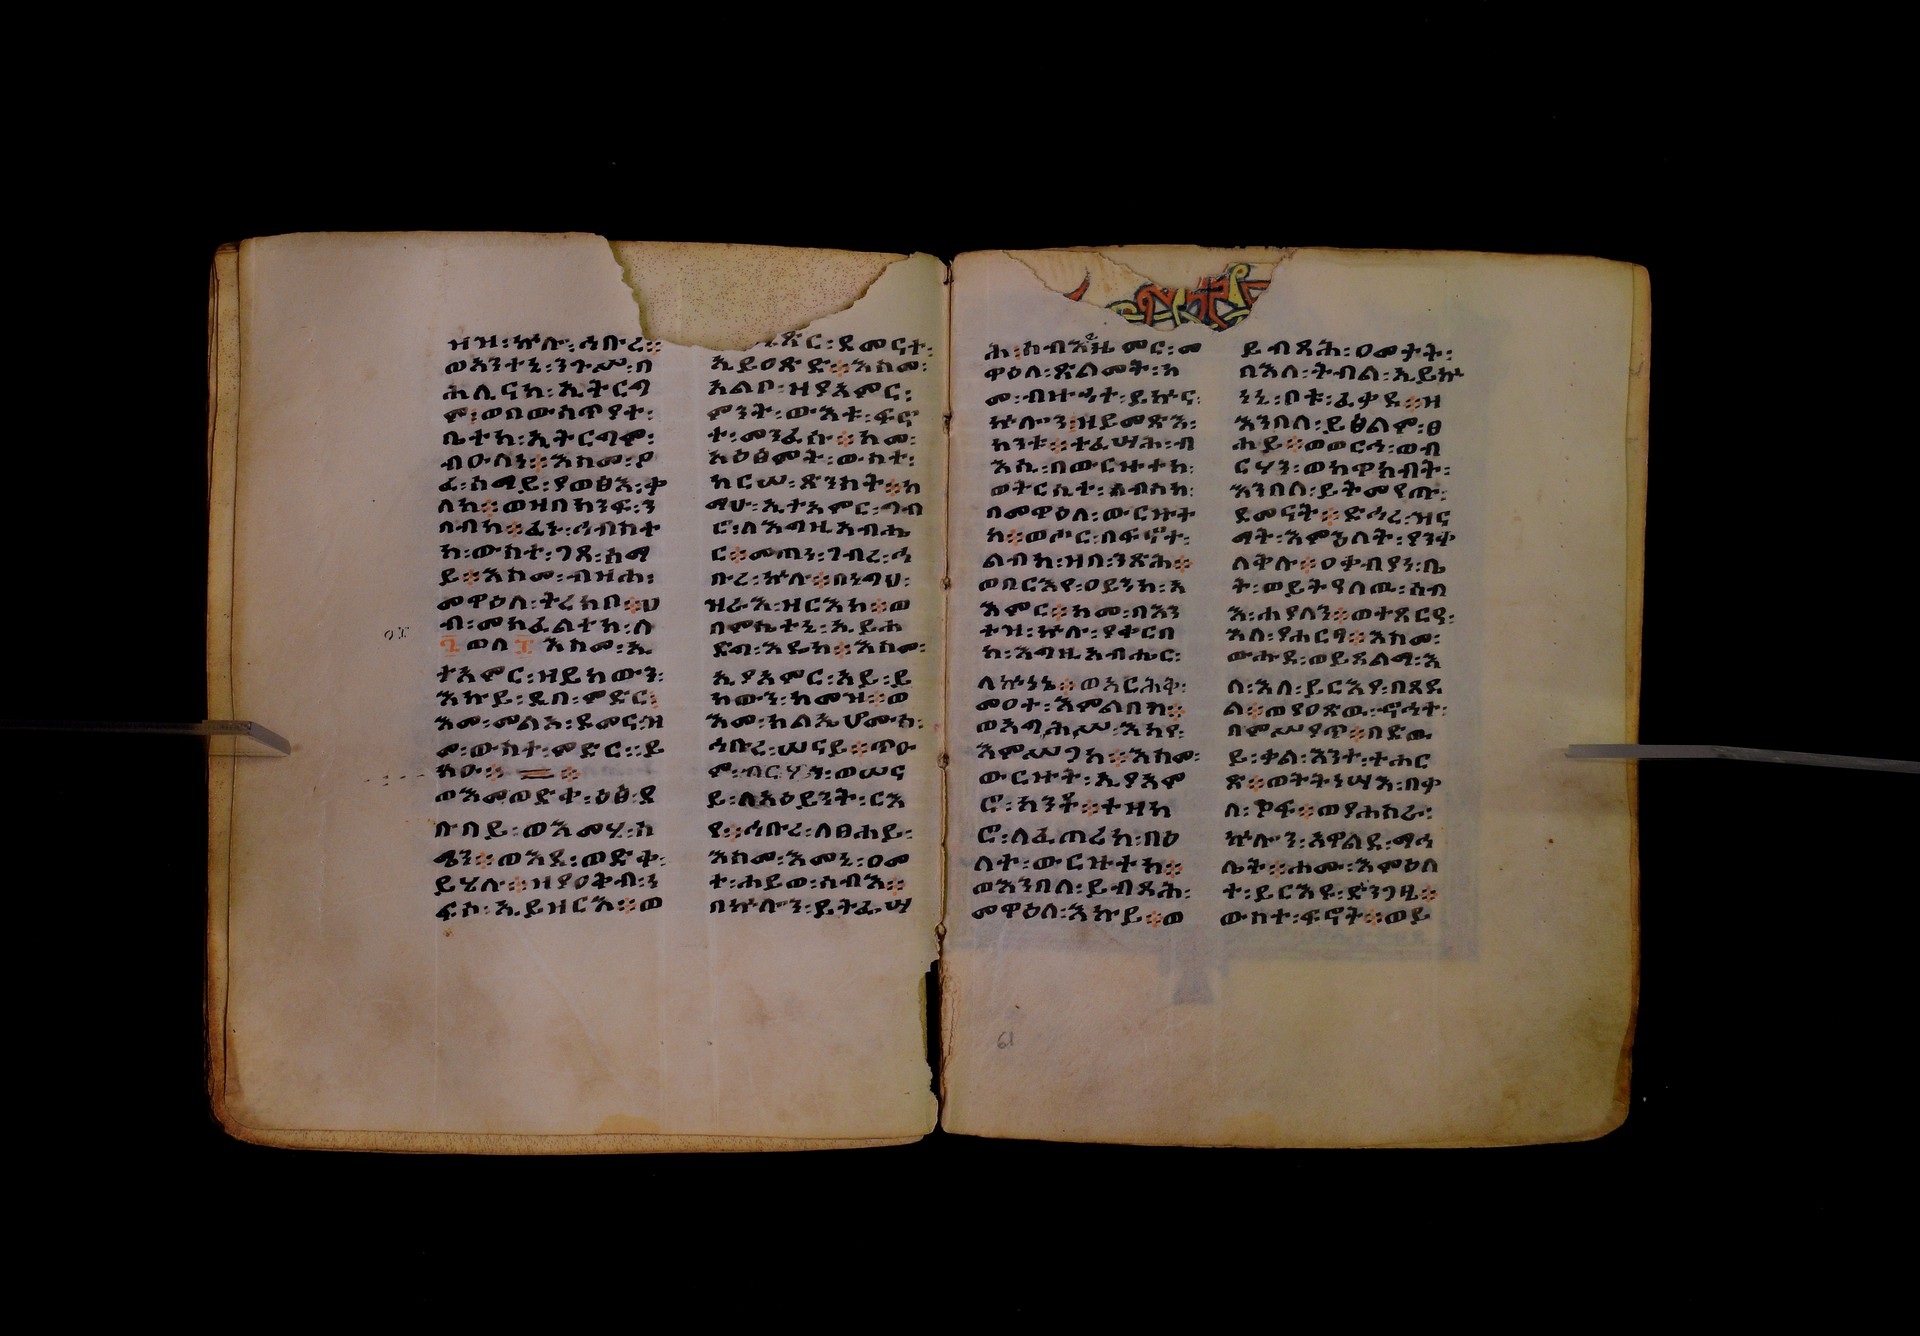 ዝዝ፡ኵሉ፡ኅቡረ፨
ወእንተኒ፡ንጉሥ፡በ
ሕሊናከ፡ኢትርግ
ም፡ወበውስጥያተ፡
ቤተከ፡ኢትርግሞ፡
ብዑለን፨እስመ፡ዖ
ፈ፡ሰማይ፡ያወፅእ፡ቃ
ለከ፨ወዘበክንፍ፡ን
በብከ፨ፈኑ፡ኅብስተ
ከ፡ውስተ፡ገጸ፡ሰማ
ይ፨እስመ፡ብዝኀ፡
መዋዕለ፡ትረክቦ፨ሀ
ብ፡መክፈልተከ፡ለ
፯ ወለ ፰ እስመ፡ኢ
ተአምር፡ዘይከውን፡
እኩይ፡ዲበ፡ምድር፡
እመ፡መልአ፡ደመና፡ዝ
መ፡ውስተ፡ምድር፡ይ
ክዑ፨
ወእመወድቀ፡ዕፅ፡ደ
ቡበይ፡ወእመሂ፡ሰ
ሜን፨ወእደ፡ወድቀ፡
ይሄሉ፨ዘያዐቅብ፡ን
ፍስ፡ኢይዘርእ፨ወ
ጽር፡ደመናተ፡
ኢይዐጽድ፨እስመ፡
አልቦ፡ዘያአምር፡
ምንት፡ውእቱ፡ፍኖ
ተ፡መንፈስ፨ከመ፡
አዕፅምት፡ውስተ፡
ከርሠ፡ጽንስት፨ከ
ማሁ፡ኢተአምር፡ግብ
ር፡ለእግዚአብሔ
ር፨መጠነ፡ገብረ፡ኅ
ቡረ፡ኵሉ፨በነግህ፡
ዝራእ፡ዘርአከ፨ወ
በምሴተኒ፡ኢይኅ
ድግ፡እዴከ፨እስመ፡
ኢያአምር፡አይ፡ይ
ከውን፡ከመዝ፨ወ
እመ፡ክልኤሆሙሰ፡
ኅቡረ፡ሠናይ፨ጥዑ
ም፡ብርሃን፡ወሠና
ይ፡ለአዕይንት፡ርእ
የ፨ኅቡረ፡ለፀሐይ፡
እስመ፡እመኒ፡ዐመ
ተ፡ሐይወ፡ሰብእ፨
በኵሉን፡ይትፌሣ
ዋዕለ፡ጽልመት፡ከ
መ፡ብዙኅት፡ይኵና፡
ኵሎን፡ዘይመጽእ፡
ከንቱ፨ተፈሣሕ፡ብ
እሲ፡በውርዙተከ፡
ወትርሲተ፡ልብስከ፡
በመዋዕለ፡ውርዙት
ከ፨ወሖር፡በፍኖተ፡
ልብከ፡ዘበንጽሕ፨
ወበርእየ፡ዐይንከ፡አ
እምር፨ከመ፡በእን
ተዝ፡ኵሉ፡ያቀርበ
ከ፡እግዚአብሔር፡
ለኵነኔ፨ወአርሕቅ፡
መዐተ፡እምልብከ፨
ወአግሕሥ፡እከየ፡
እምሥጋከ፨እስመ፡
ውርዙት፡ኢያእም
ሮ፡ከንቶ፨ተዘከ
ሮ፡ለፈጣሪከ፡በዕ
ለተ፡ውርዙተከ፨
ወእንበለ፡ይብጻሕ፡
መዋዕለ፡እኩይ፨ወ
ይብጻሕ፡ዐመታት፡
በእለ፡ትብል፡ኢይኩ
ነኒ፡በቱ፡ፈቃደ፨ዘ
እንበለ፡ይፅልም፡ፀ
ሐይ፨ወወርኅ፡ወብ
ርሃን፡ወከዋክብት፡
እንበለ፡ይትመየጡ፡
ደመናት፨ድኅረ፡ዝና
ማት፡እምዕለት፡ያንቀ
ለቅሉ፨ዐቀብያነ፡ቤ
ት፡ወይትሃለዉ፡ሰብ
አ፡ኀያላን፨ወተጸርዓ፡
እለ፡ያሐርፃ፨እስመ፡
ውሑደ፡ወይጸልማ፡እ
ለ፡እለ፡ይርእያ፡በጸደ
ል፨ወያዐጽዉ፡ኆኅተ፡
በምሥያጥ፨በድዉ
ይ፡ቃል፡እንተ፡ተሐር
ጽ፨ወትትነሣእ፡በቃ
ለ፡ዖፍ፨ወያሐስራ፡
ኵሎን፡አዋልደ፡ማኅ
ሌት፨ሐሙ፡እምዕለ
ት፡ይርእዩ፡ድንጋፄ፨
ውስተ፡ፍኖት፨ወይ
61